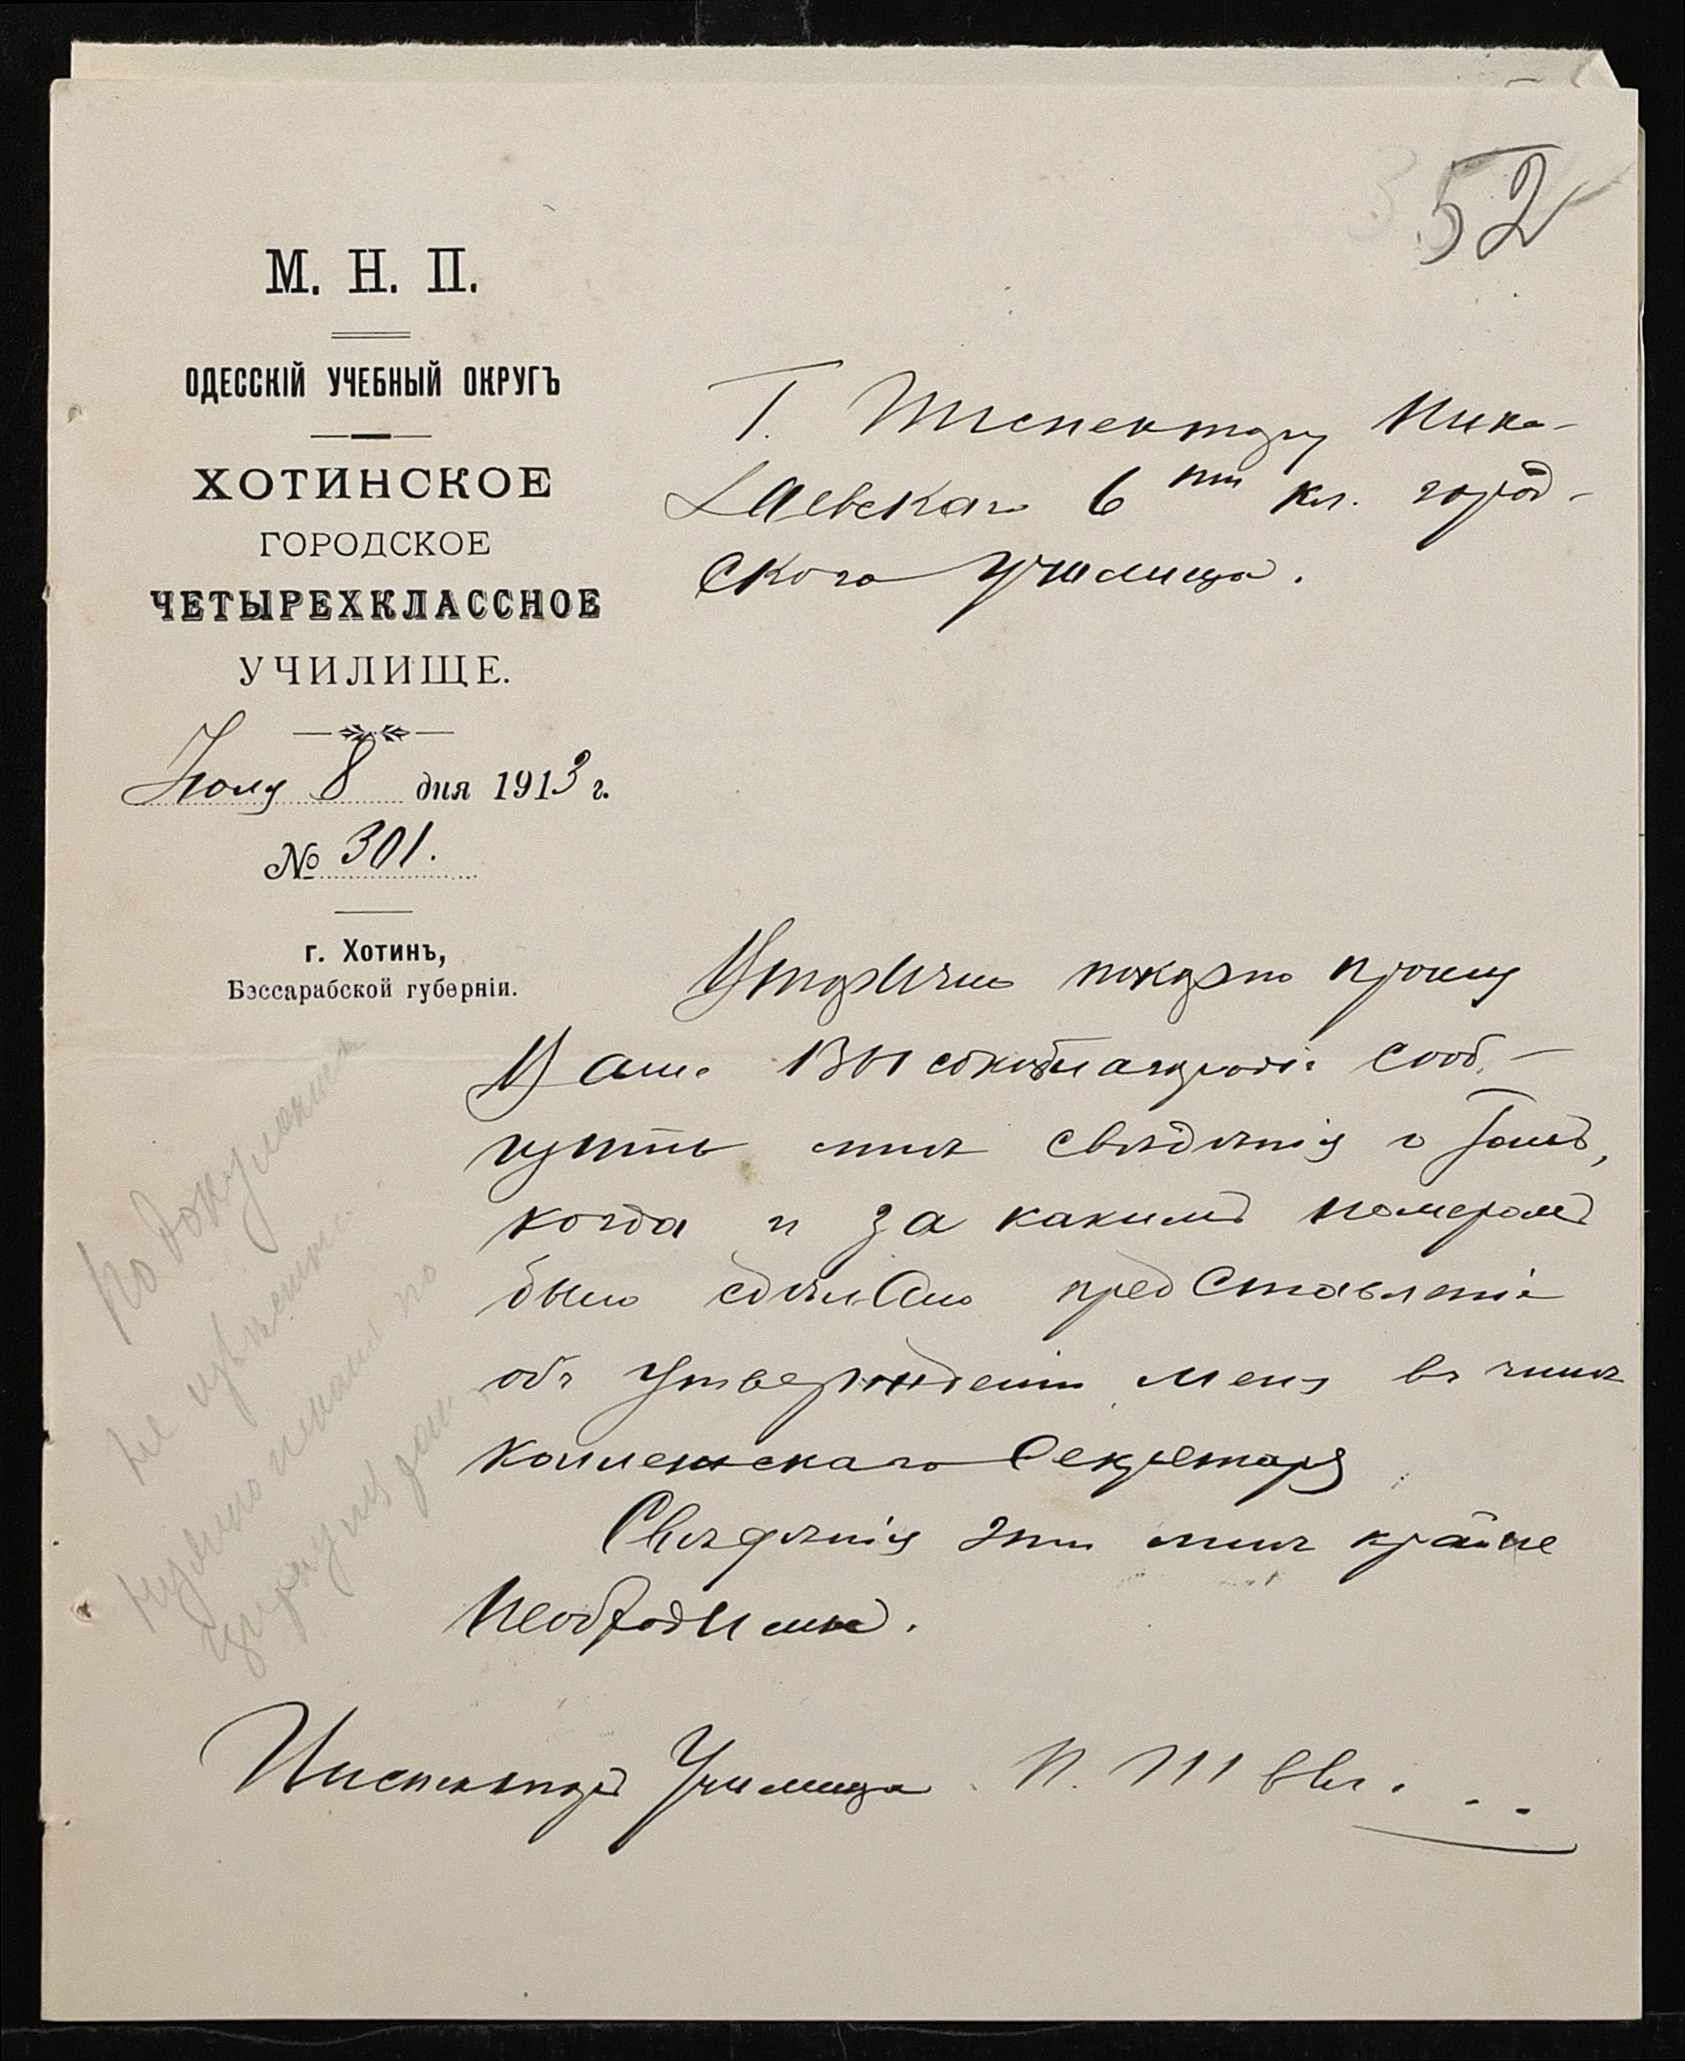 52
М. Н. П.
ОДЕССКІЙ УЧЕБНЫЙ ОКРУГЪ
ХОТИНСКОЕ
ГОРОДСКОЕ
ЧЕТЫРЕХКЛАССНОЕ
УЧИЛИЩЕ.
Іюля 8 дня 1913 г.
№ 301.
г. Хотинъ,
Бессарабской губерніи.
Г. Инспектору Нико-
лаевскаго 6ти кл. город-
ского училища.
Вторично покорно прошу
Ваше Высокоблагородіе сооб-
щить мнѣ свѣдѣнія о томъ,
когда и за какимъ номеромъ
было сдѣлано представленіе
объ утвержденіи меня въ чинѣ
коллежскаго секретаря
Свѣдѣнія эти мнѣ крайне
необходимы.
Инспекторъ Училища П.
По документамъ
не